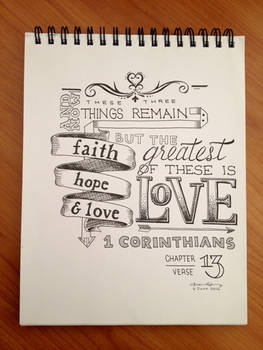 AND NOW
THESE THREE
THINGS REMAIN
faith
hope
& love
BUT THE
greatest
OF THESE IS
LOVE
1 CORINTHIANS
CHAPTER
VERSE
13